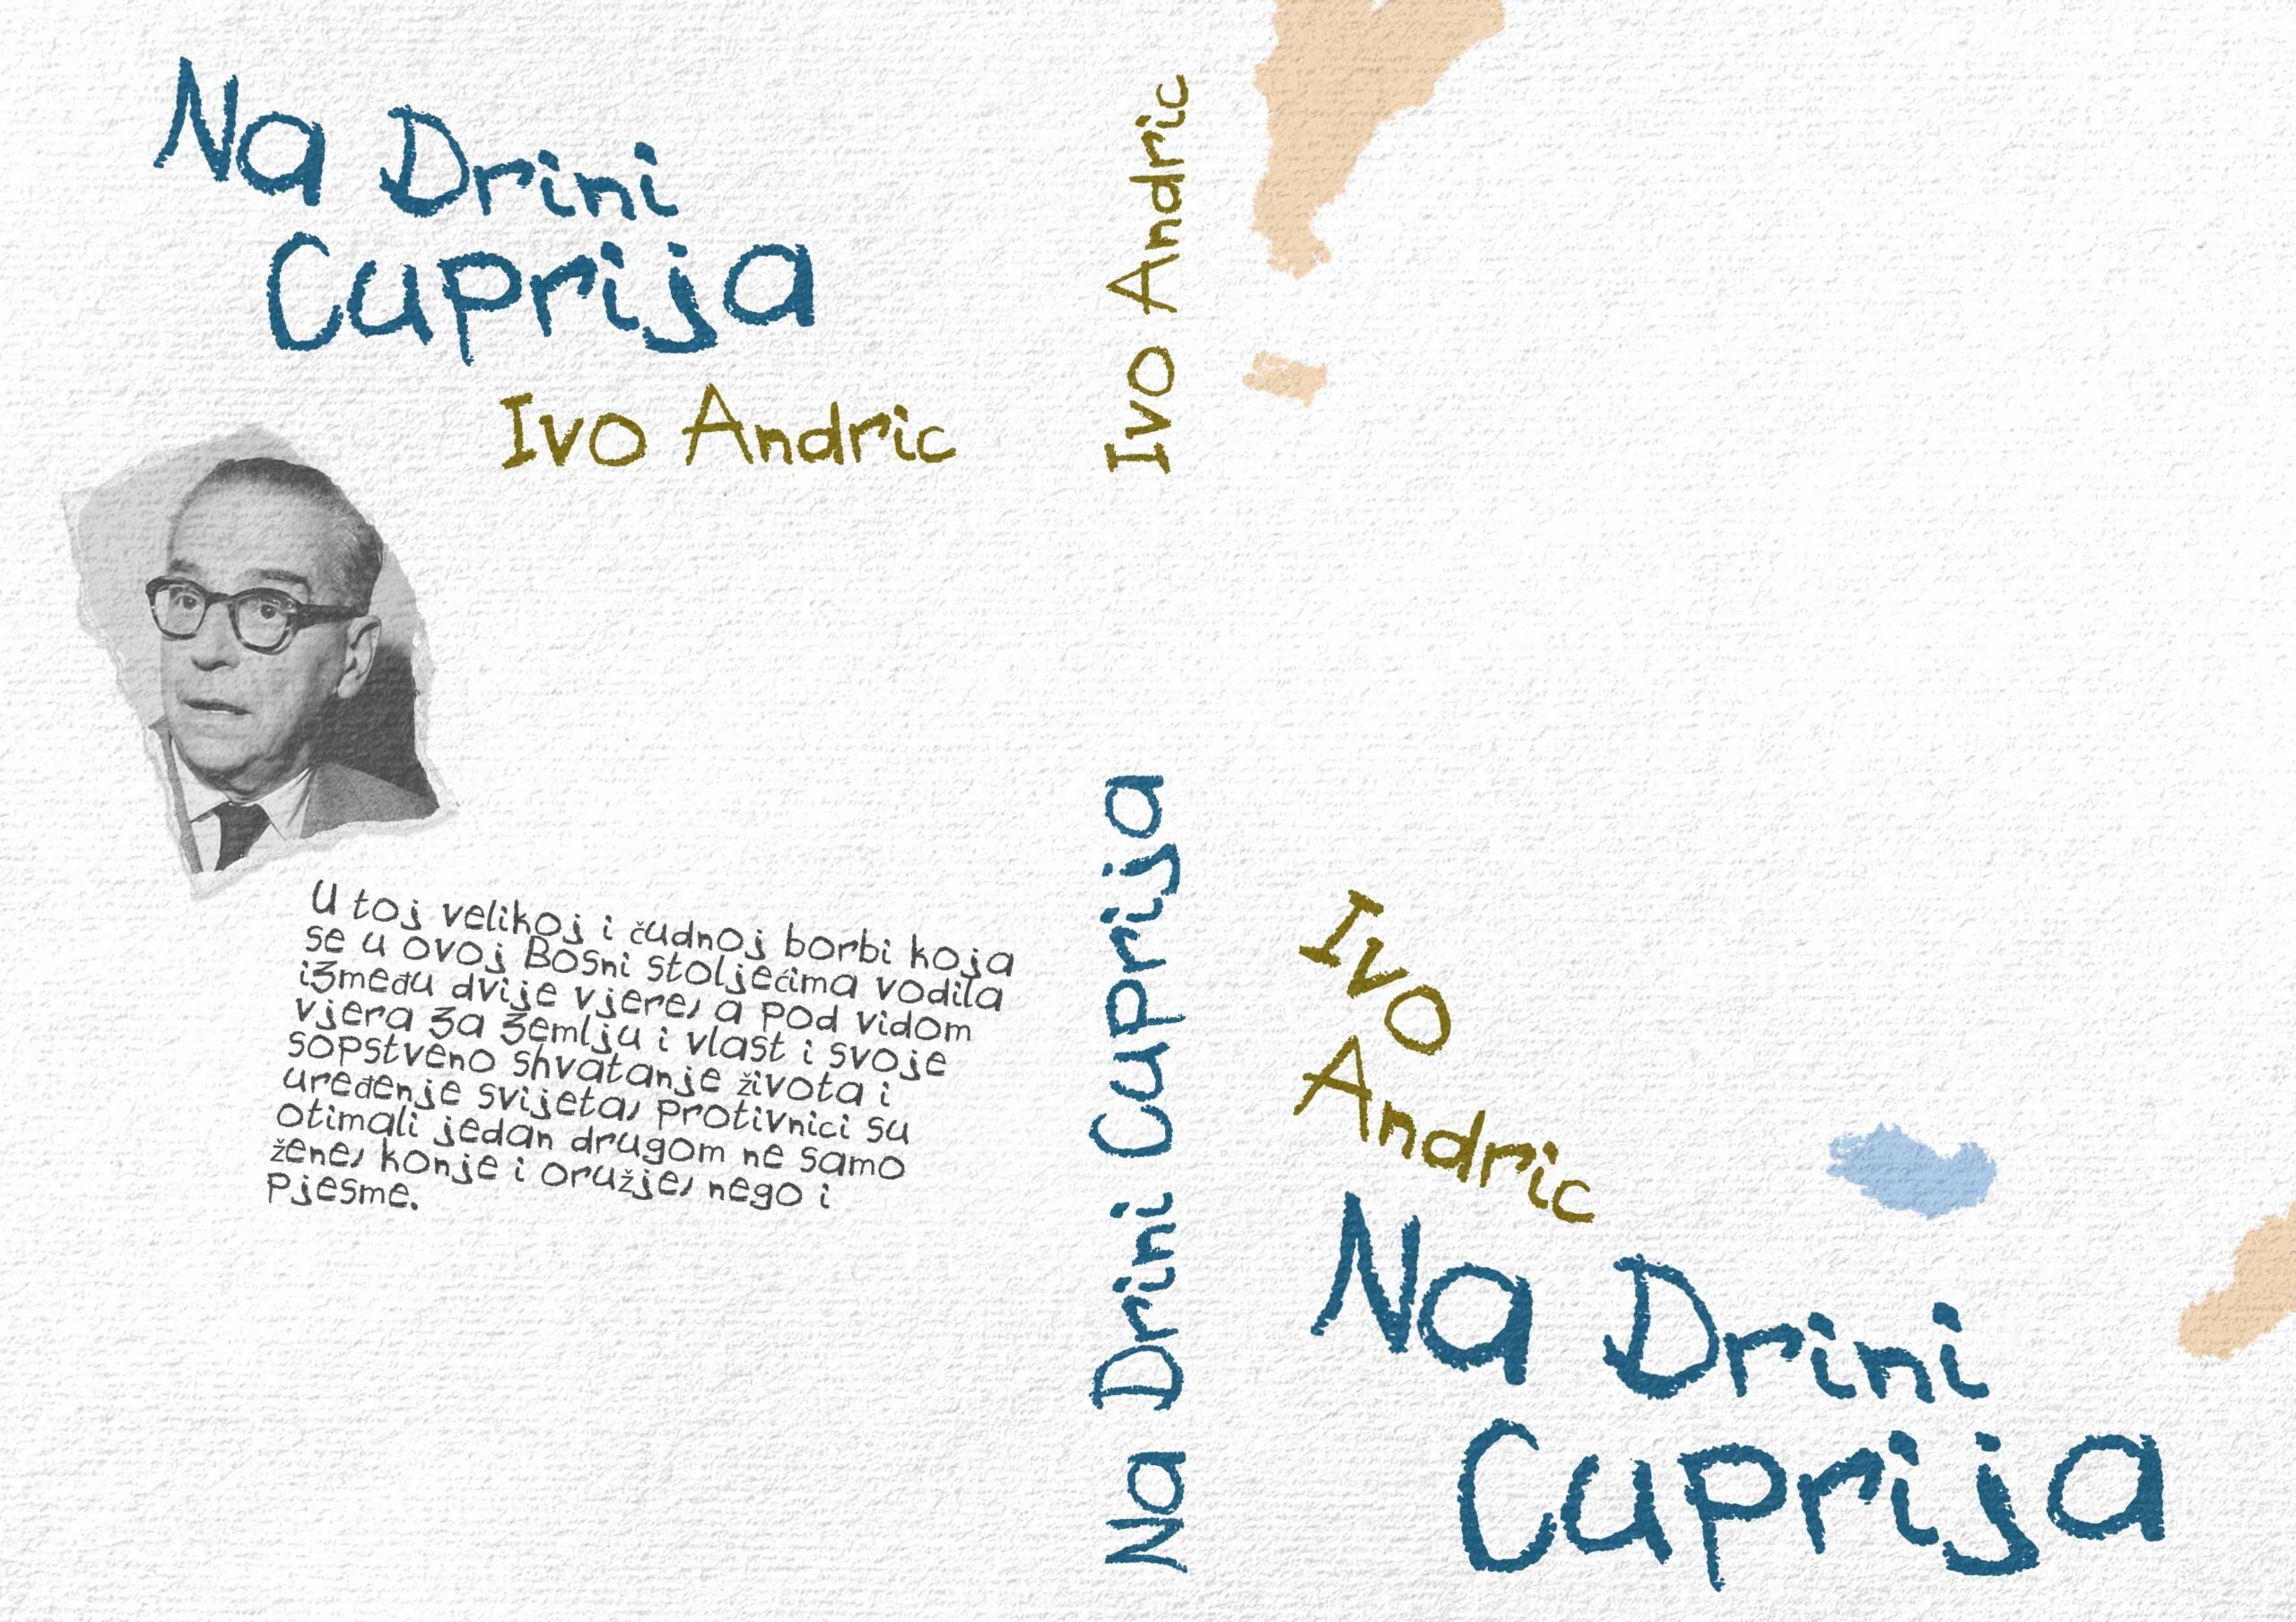 Na Drini
Cuprija
Ivo Andric
U toj velikoj i čudnoj borbi koja
se u ovoj Bosni stoljećima vodila
između dvije vjere, a pod vidom
vjera za zemlju i vlast i svoje
sopstveno shvatanje života i
uređenje svijeta, protivnici su
otimali jedan drugom ne samo
žene, konje i oružje, nego i
pjesme.
Ivo Andric
Na Drini Cuprija
Ivo
Andric
Na Drini
Cuprija